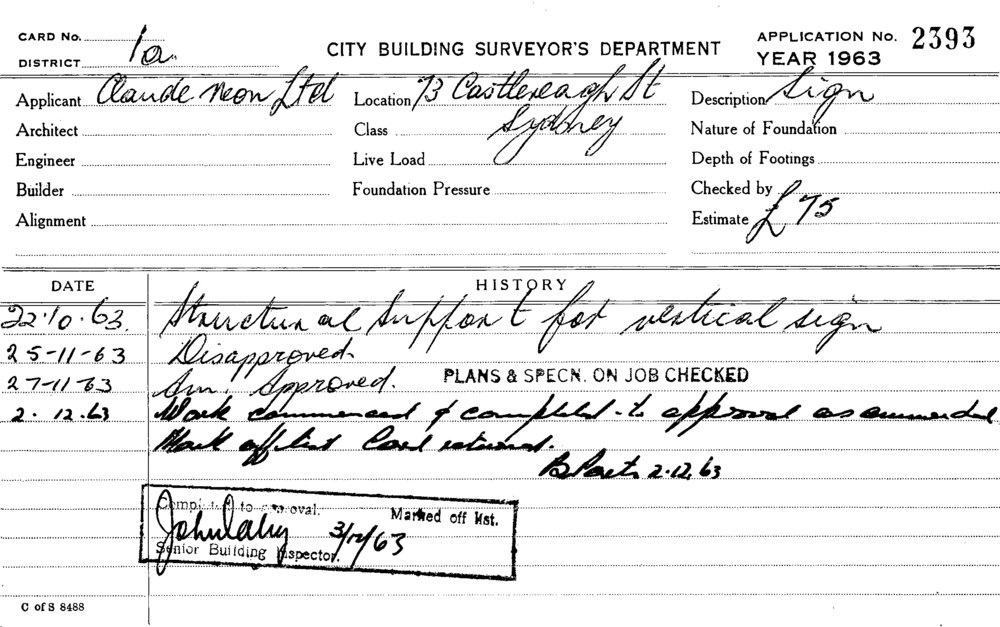 CARD No.
DISTRICT 1a
CITY BUILDING SURVEYOR'S DEPARTMENT
APPLICATION No. 2393
YEAR 1963
Applicant Claude Neon Ltd
Location 73 Castlereagh St
Description Sign
Architect
Class Sydney
Nature of Foundation
Engineer
Live Load
Depth of Footings
Builder
Foundation Pressure
Checked by
Alignment
Estimate £75
DATE HISTORY
22.10.63. Structural Support for vertical sign
25-11-63 Disapproved.
27-11-63 Am. Approved. PLANS & SPECN. ON JOB CHECKED
2.12.63 Work commenced & completed to approval as ammended
Mark off list Card returned.
2.12.63
Completed to approval. Marked off list.
3/12/63
Senior Building Inspector.
C of S 8488